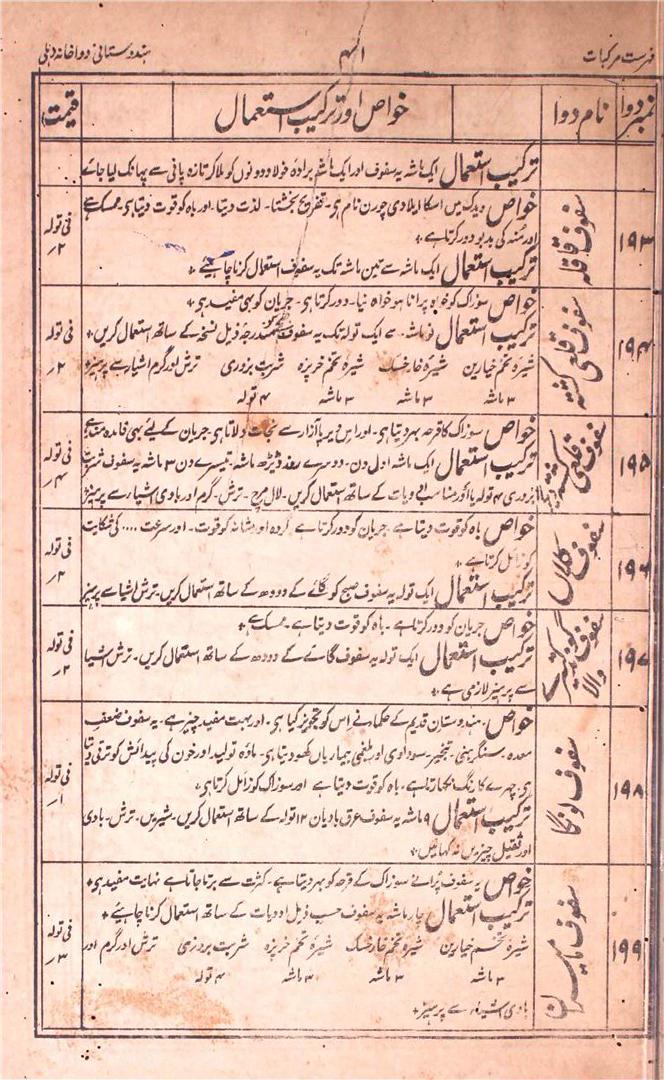 فہرست مرکبات
۴۱
ہندوستانی دواخانہ دہلی
نمبر دوا
نام دوا
خواص اور ترکیب استعمال
قیمت
ترکیب استعمال ایک ماشہ یہ سفوف اور ایک ماشہ برادہ فولاد دونوں کو ملا کر تازہ پانی سے پھانک لیا جائے
۱۹۳
سفوف قاقلہ
خواص ویدک میں اسکا ایلادی چورن نام ہی۔ تفریح بخشتا۔ لذت دیتا۔ اور باہ کو قوت دیتا ہی۔ ممسک ہے
اور منہ کی بدبو دور کرتا ہے۔
ترکیب استعمال ایک ماشہ سے تین ماشہ تک یہ سفوف استعمال کرنا چاہیے۔
فی تولہ
۲؍
۱۹۴
سفوف قلعی کشتہ
خواص سوزاک کو خواہ پرانا ہو خواہ نیا۔ دور کرتا ہی۔ جریان کو بھی مفید ہی۔
ترکیب استعمال ۶ ماشہ سے ایک تولہ تک یہ سفوف مندرجہ ذیل نسخہ کے ساتھ استعمال کریں۔
شیرہ تخم خیارین شیرہ خارخسک شیرہ تخم خرپزہ شربت بزوری ترش اور گرم اشیا سے پرہیز
۳ ماشہ ۳ ماشہ ۳ ماشہ ۴ تولہ
فی تولہ
۲؍
۱۹۵
سفوف قلعی
خواص سوزاک کا قرحہ بھر دیتا ہی۔ اور اس دیرپا آزار سے نجات دلاتا ہی۔ جریان کے لیے بھی فائدہ مند ہے
ترکیب استعمال ایک ماشہ اول دن۔ دوسرے روز ڈیڑھ ماشہ۔ تیسرے دن ۳ ماشہ یہ سفوف شربت
بزوری ۴ تولہ یا اور مناسب ادویات کے ساتھ استعمال کریں۔ لال مرچ۔ ترش۔ گرم اور بادی اشیا سے پرہیز
فی تولہ
۴؍
۱۹۶
سفوف کلاں
خواص باہ کو قوت دیتا ہے۔ جریان کو دور کرتا ہے گردہ اور مثانہ کو قوت۔ اور سرعت .... کی شکایت
کو زائل کرتا ہے۔
ترکیب استعمال ایک تولہ یہ سفوف صبح کو گائے کے دودھ کے ساتھ استعمال کریں۔ ترش اشیا سے پرہیز
فی تولہ
۲؍
۱۹۷
سفوف گوند کتیرے والا
خواص جریان کو دور کرتا ہے۔ باہ کو قوت دیتا ہے۔ ممسک ہے۔
ترکیب استعمال ایک تولہ یہ سفوف گائے کے دودھ کے ساتھ استعمال کریں۔ ترش اشیا
سے پرہیز لازمی ہے۔
فی تولہ
۲؍
۱۹۸
سفوف لونگا
خواص۔ ہندوستان قدیم کے حکما نے اس کو تجویز کیا ہی۔ اور بہت مفید چیز ہے۔ یہ سفوف ضعف
معدہ۔ سنگرہنی۔ تبخیر۔ سوداوی اور بلغمی بیماریاں کھو دیتا ہی۔ مادہ تولید اور خون کی پیدائش کو ترقی دیتا
ہی۔ چہرے کا رنگ نکھارتا ہے۔ باہ کو قوت دیتا ہے اور سوزاک کو زائل کرتا ہی۔
ترکیب استعمال ۹ ماشہ یہ سفوف عرق بادیان ۱۲ تولہ کے ساتھ استعمال کریں۔ شیریں۔ ترش۔ بادی
اور ثقیل چیزیں نہ کھائیں۔
فی تولہ
۱؍
۱۹۹
سفوف مامیران
خواص یہ سفوف پرانے سوزاک کے قرحہ کو بھر دیتا ہے۔ کثرت سے برتا جاتا ہے نہایت مفید ہی۔
ترکیب استعمال چار ماشہ یہ سفوف حسب ذیل ادویات کے ساتھ استعمال کرنا چاہئے۔
شیرہ تخم خیارین شیرہ تخم خارخسک شیرہ تخم خرپزہ شربت بزوری ترش اور گرم اور
۳ ماشہ ۳ ماشہ ۳ ماشہ ۴ تولہ
بادی اشیا سے پرہیز۔
فی تولہ
۳؍